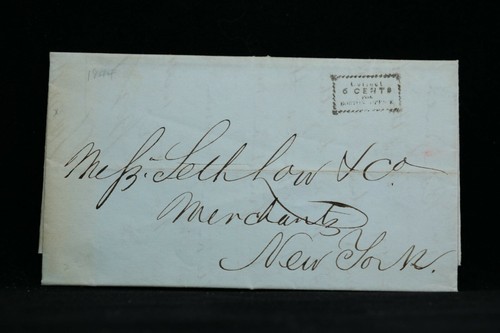 1844
6 CENTS
Messrs. Seth Low & Co.
Merchants
New York.